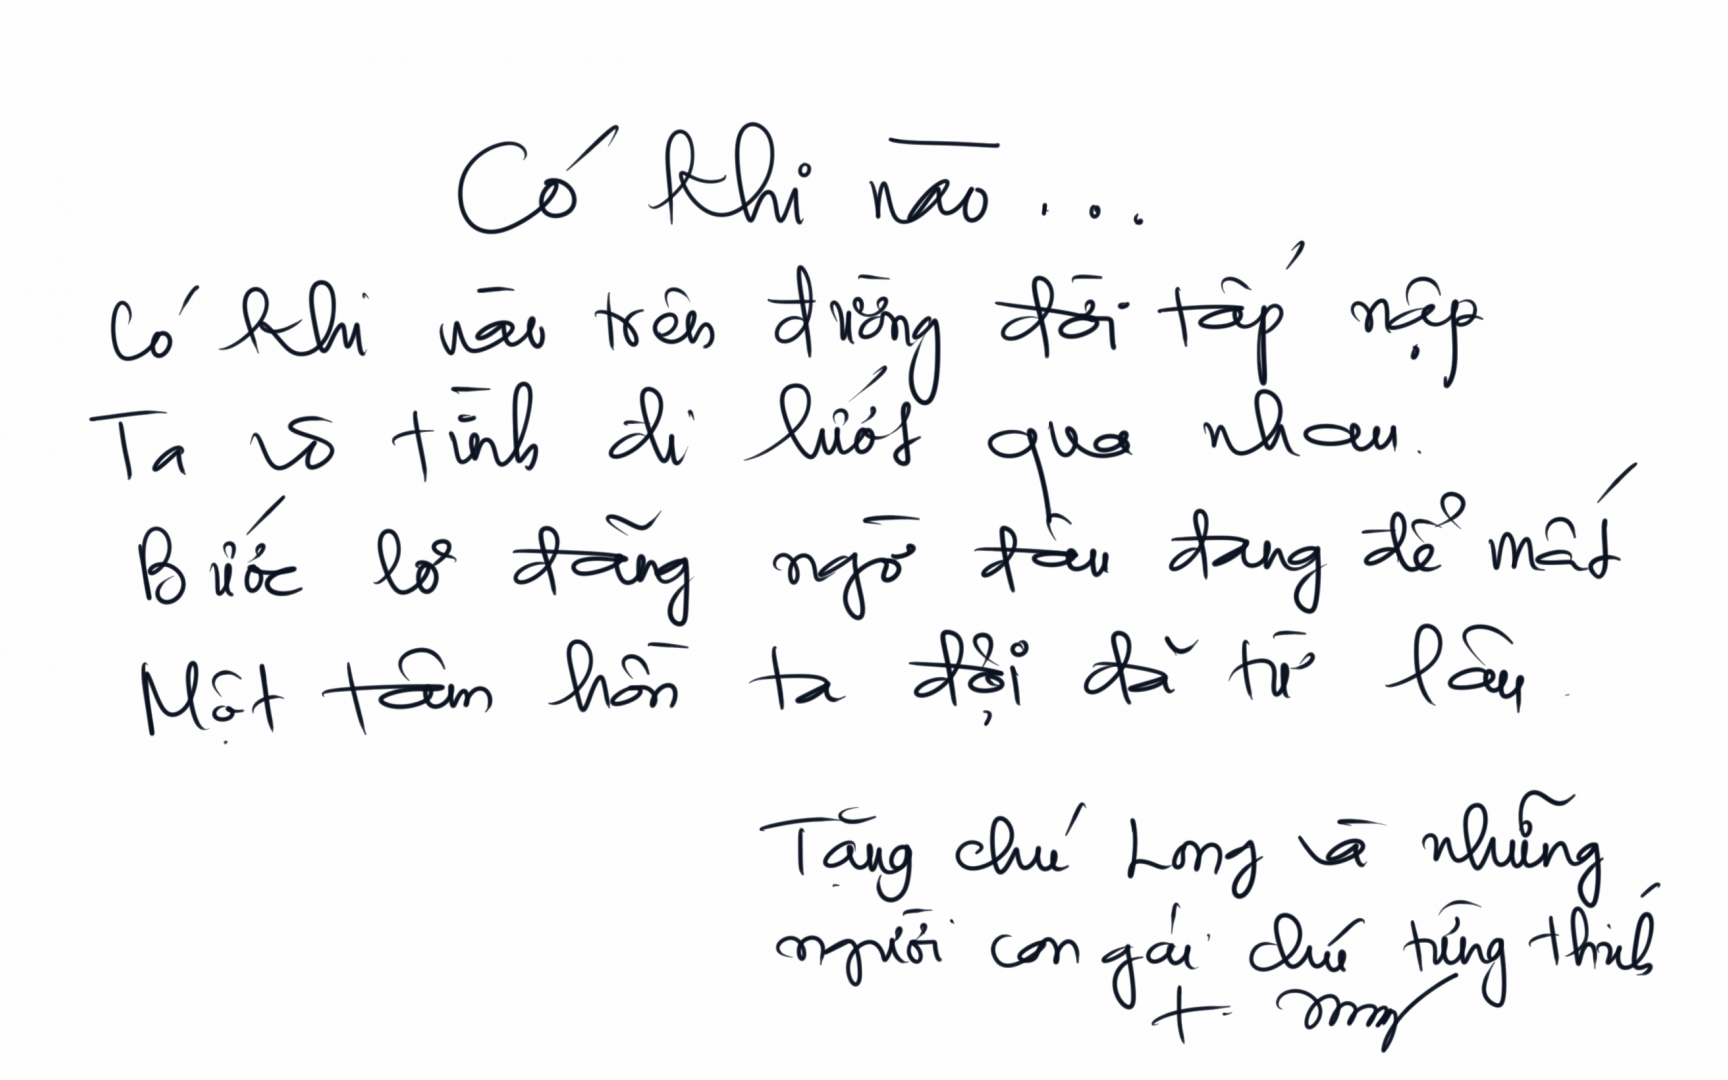 Có khi nào...
Có khi nào trên đường đời tấp nập
Ta vô tình đi lướt qua nhau.
Bước lơ đãng ngờ đâu đang để mất
Một tâm hồn ta đợi đã từ lâu.
Tặng chú Long và những
người con gái chú từng thích